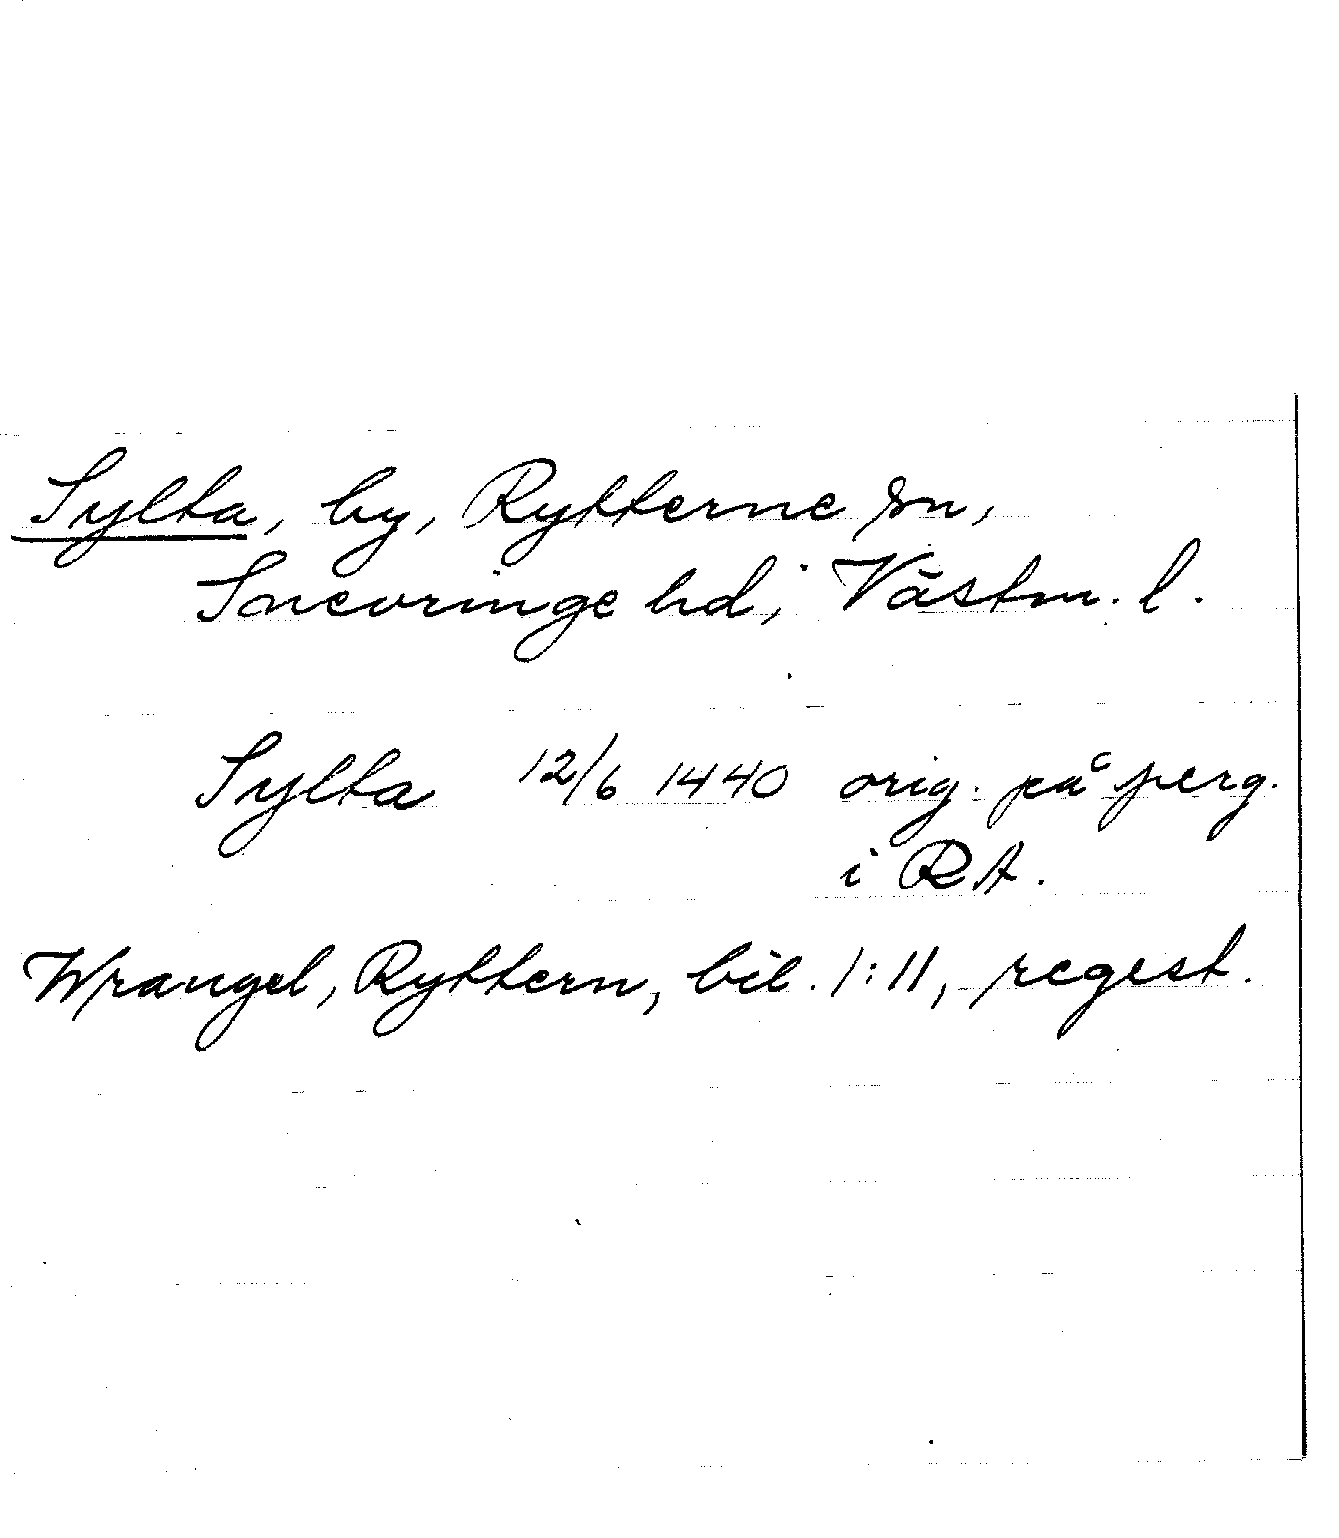 Sylta, by, Rytterne sn,
Snevringe hd, Västm. l.
Sylta 12/6 1440 orig. på perg.
i RA.
Wrangel, Ryttern, bil. 1:11, regest.